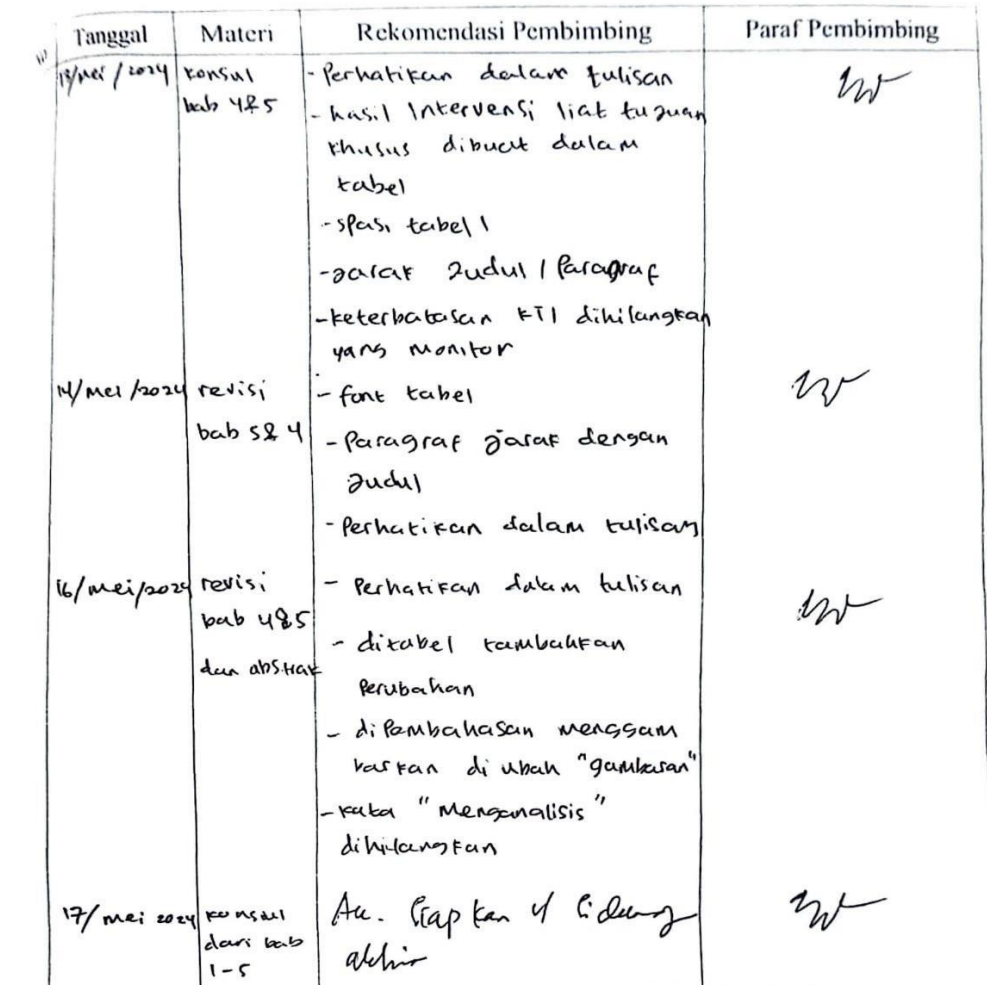 Tanggal Materi Rekomendasi Pembimbing Paraf Pembimbing
13/mei/2024 konsul - Perhatikan dalam tulisan
bab 4&5 - hasil Intervensi liat tujuan
khusus dibuat dalam
tabel
- spasi tabel 1
- jarak Judul / Paragraf
- keterbatasan KTI dihilangkan
yang monitor
14/mei/2024 revisi - font tabel
bab 5&4 - Paragraf jarak dengan
Judul
- Perhatikan dalam tulisan
16/mei/2024 revisi - Perhatikan dalam tulisan
bab 4&5 - ditabel tambahkan
dan abstrak Perubahan
- diPembahasan menggam
barkan di ubah "gambaran"
- kata "Menganalisis"
dihilangkan
17/mei 2024 konsul siapkan sidang
dari bab akhir
1-5